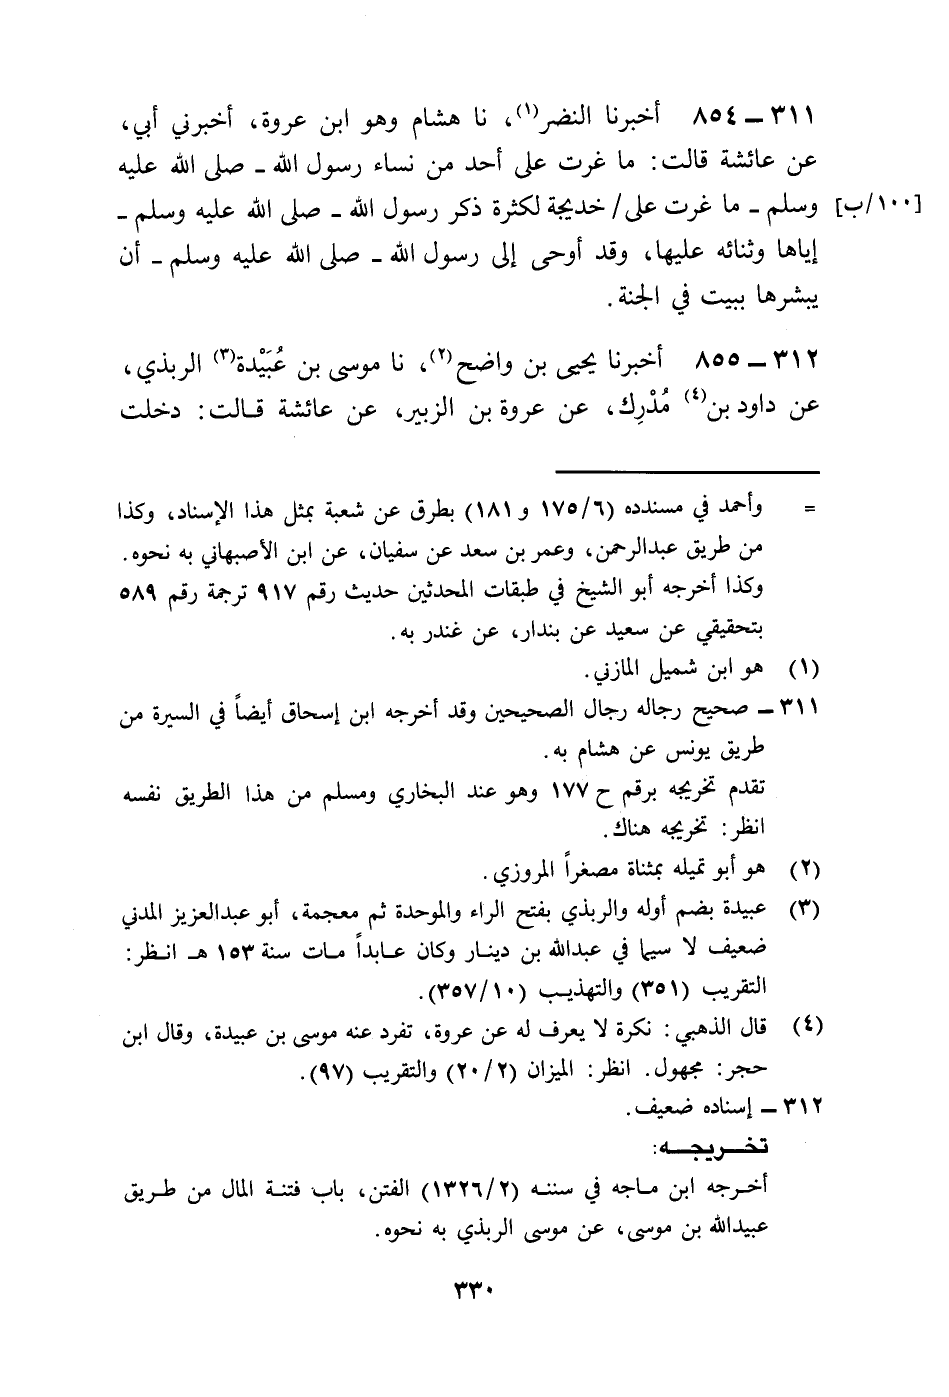 ٣١١ – ٨٥٤ أخبرنا النضر(١)، نا هشام وهو ابن عروة، أخبرني أبي،
عن عائشة قالت: ما غرت على أحد من نساء رسول الله - صلى الله عليه
[١٠٠/ب] وسلم - ما غرت على/ خديجة لكثرة ذكر رسول الله - صلى الله عليه وسلم -
إياها وثنائه عليها، وقد أوحى إلى رسول الله - صلى الله عليه وسلم - أن
يبشرها ببيت في الجنة.
٣١٢ – ٨٥٥ أخبرنا يحيى بن واضح(٢)، نا موسى بن عُبَيْدة(٣) الربذي،
عن داود بن(٤) مُدْرِك، عن عروة بن الزبير، عن عائشة قالت: دخلت
= وأحمد في مسندده (٦/ ١٧٥ و ١٨١) بطرق عن شعبة بمثل هذا الإسناد، وكذا
من طريق عبدالرحمن، وعمر بن سعد عن سفيان، عن ابن الأصبهاني به نحوه.
وكذا أخرجه أبو الشيخ في طبقات المحدثين حديث رقم ٩١٧ ترجمة رقم ٥٨٩
بتحقيقي عن سعيد عن بندار، عن غندر به.
(١) هو ابن شميل المازني.
٣١١ – صحيح رجاله رجال الصحيحين وقد أخرجه ابن إسحاق أيضاً في السيرة من
طريق يونس عن هشام به.
تقدم تخريجه برقم ح ١٧٧ وهو عند البخاري ومسلم من هذا الطريق نفسه
انظر: تخريجه هناك.
(٢) هو أبو تميله بمثناة مصغراً المروزي.
(٣) عبيدة بضم أوله والربذي بفتح الراء والموحدة ثم معجمة، أبو عبدالعزيز المدني
ضعيف لا سيما في عبدالله بن دينار وكان عابداً مات سنة ١٥٣ هـ انظر:
التقريب (٣٥١) والتهذيب (١٠/ ٣٥٧).
(٤) قال الذهبي: نكرة لا يعرف له عن عروة، تفرد عنه موسى بن عبيدة، وقال ابن
حجر: مجهول. انظر: الميزان (٢/ ٢٠) والتقريب (٩٧).
٣١٢ – إسناده ضعيف.
تخريجه:
أخرجه ابن ماجه في سننه (٢/ ١٣٢٦) الفتن، باب فتنة المال من طريق
عبيدالله بن موسى، عن موسى الربذي به نحوه.
٣٣٠